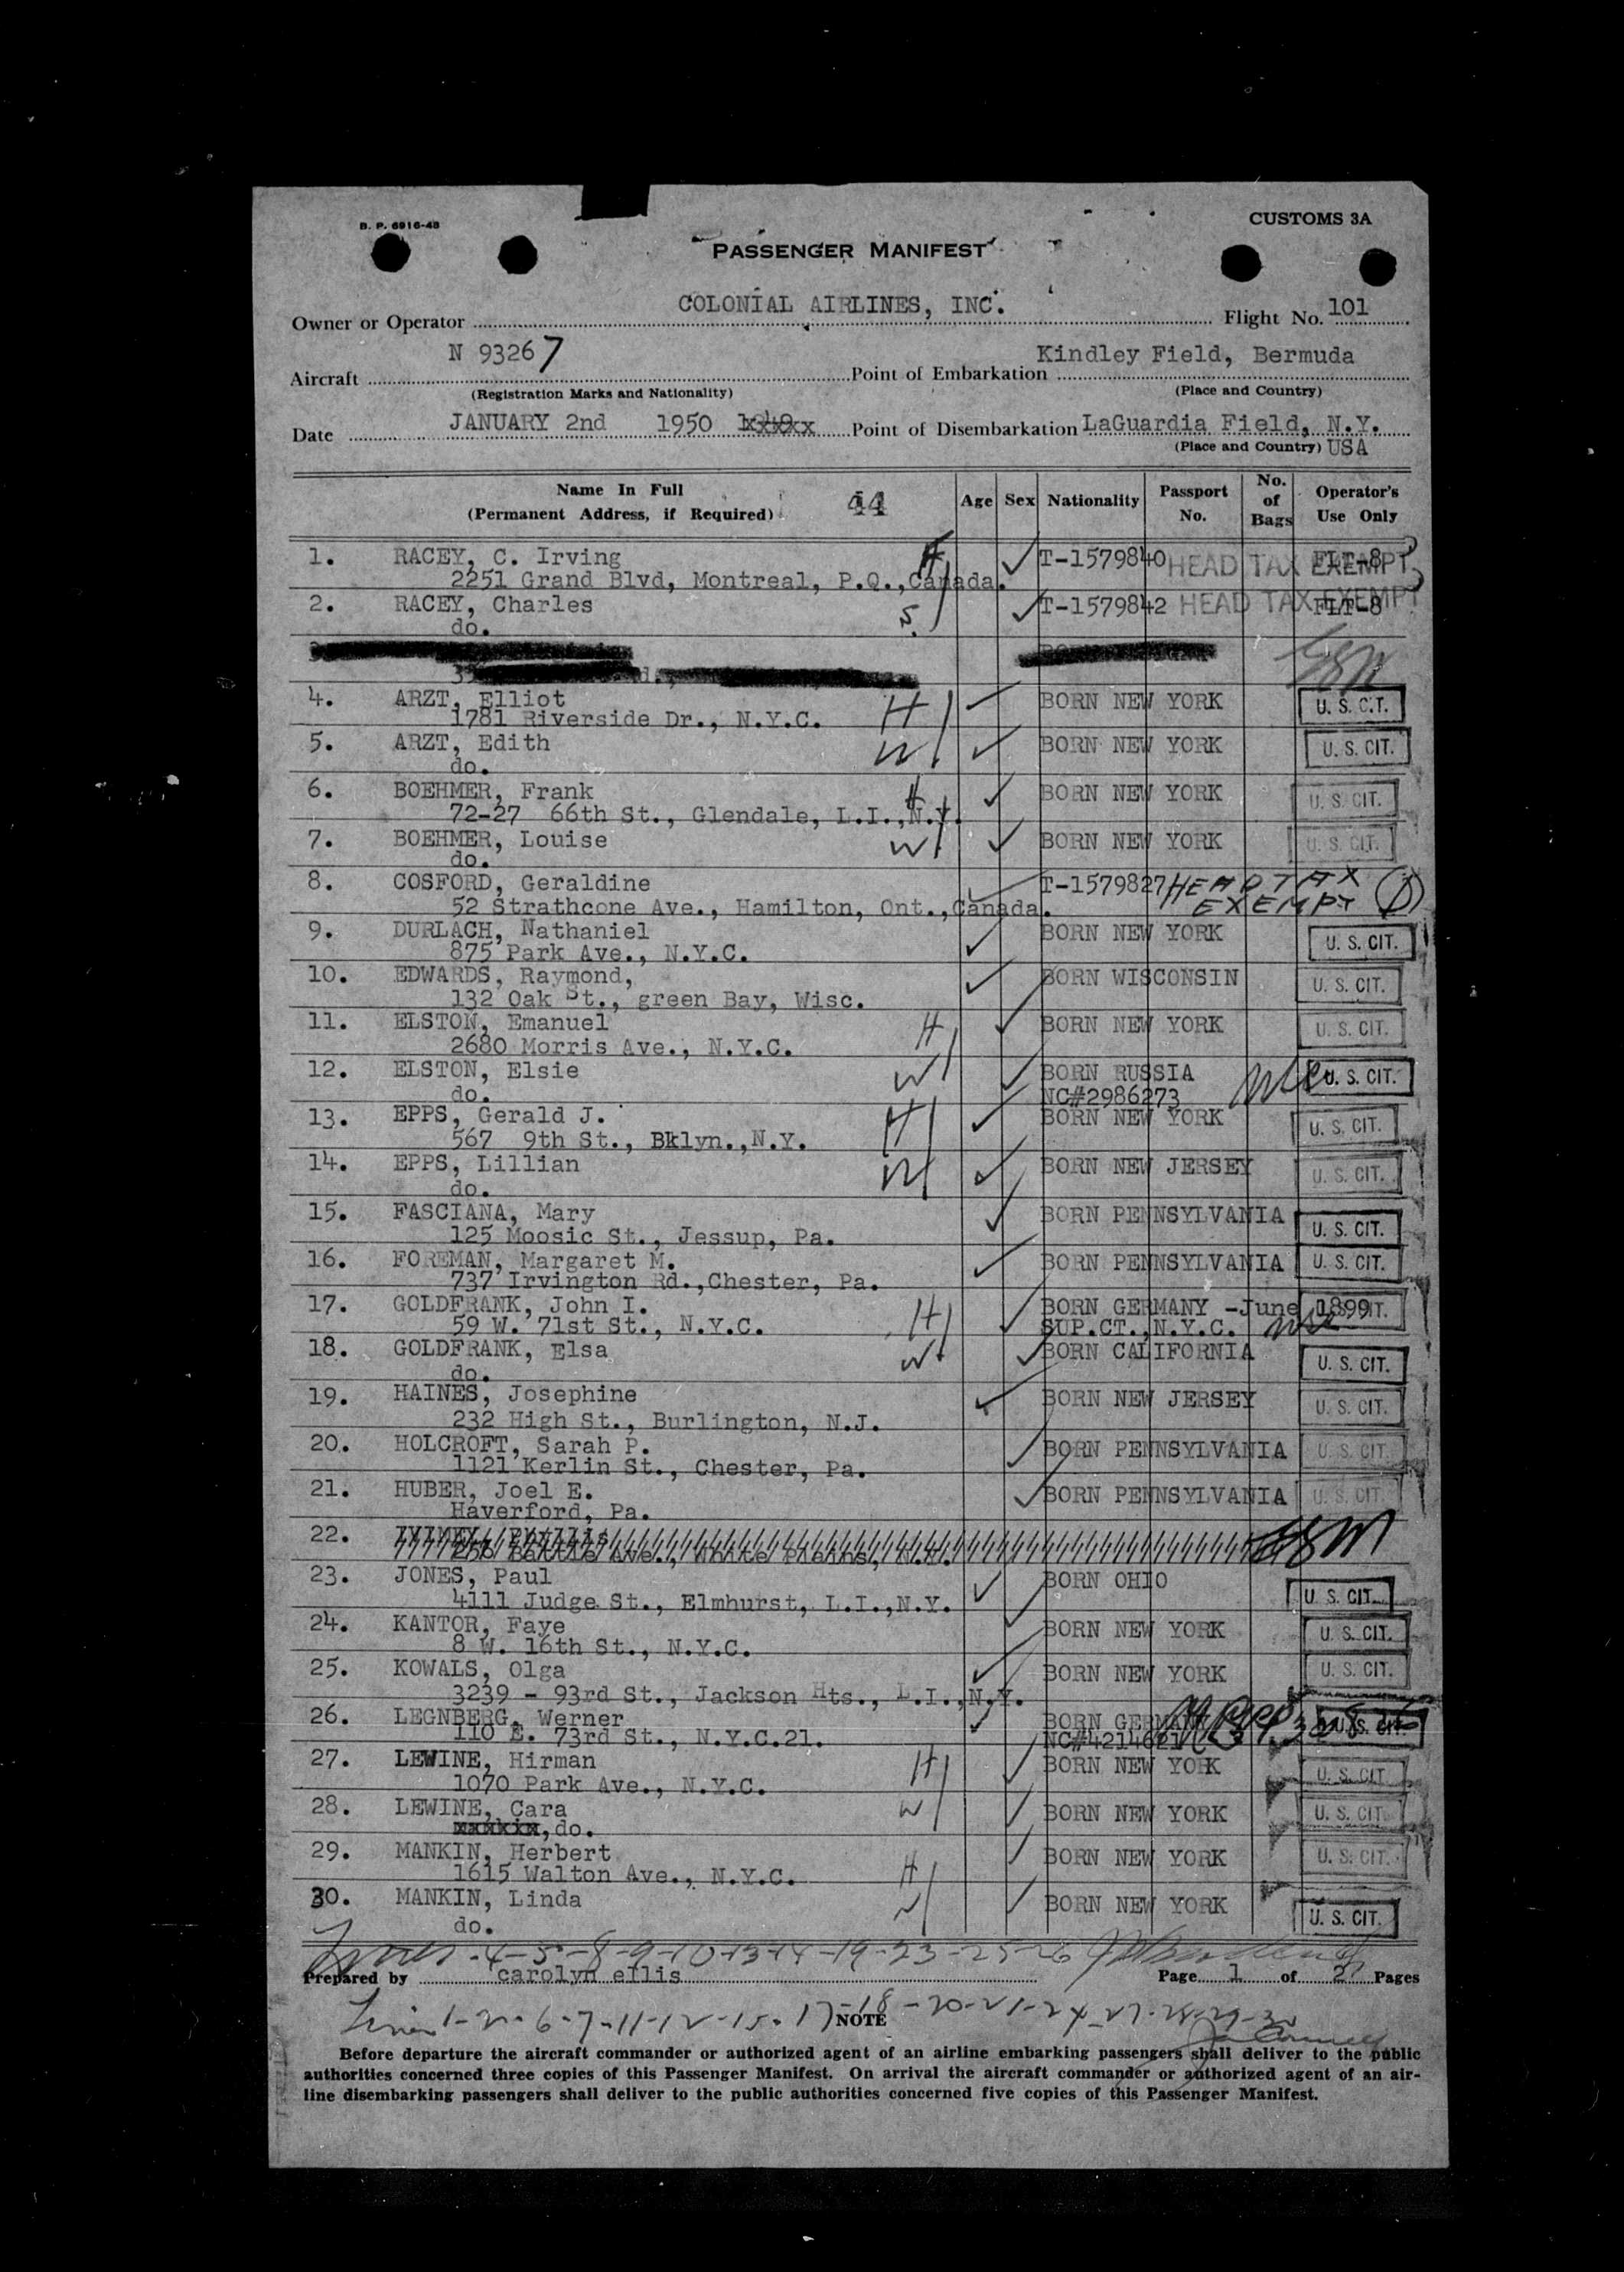 B. P. 6916-48
CUSTOMS 3A
PASSENGER MANIFEST
COLONIAL AIRLINES, INC.
Owner or Operator
Flight No. 101
N 93267
Kindley Field, Bermuda
Aircraft
Point of Embarkation
(Registration Marks and Nationality)
(Place and Country)
JANUARY 2nd 1950
Date
Point of Disembarkation LaGuardia Field, N.Y.
(Place and Country) USA
Name In Full
(Permanent Address, if Required)
44
Age Sex Nationality
Passport No.
No. of Bags
Operator's Use Only
1. RACEY, C. Irving H T-1579840 HEAD TAX EXEMPT FLT-8
2251 Grand Blvd, Montreal, P.Q.,Canada.
2. RACEY, Charles S. T-1579842 HEAD TAX EXEMPT FLT-8
do.
4. ARZT, Elliot H BORN NEW YORK U. S. CIT.
1781 Riverside Dr., N.Y.C.
5. ARZT, Edith W BORN NEW YORK U. S. CIT.
do.
6. BOEHMER, Frank H BORN NEW YORK U. S. CIT.
72-27 66th St., Glendale, L.I.,N.Y.
7. BOEHMER, Louise W BORN NEW YORK U. S. CIT.
do.
8. COSFORD, Geraldine T-1579827 HEAD TAX
52 Strathcone Ave., Hamilton, Ont.,Canada. EXEMPT
9. DURLACH, Nathaniel BORN NEW YORK U. S. CIT.
875 Park Ave., N.Y.C.
10. EDWARDS, Raymond, BORN WISCONSIN U. S. CIT.
132 Oak St., green Bay, Wisc.
11. ELSTON, Emanuel H BORN NEW YORK U. S. CIT.
2680 Morris Ave., N.Y.C.
12. ELSTON, Elsie W BORN RUSSIA U. S. CIT.
do. NC#2986273
13. EPPS, Gerald J. H BORN NEW YORK U. S. CIT.
567 9th St., Bklyn.,N.Y.
14. EPPS, Lillian W BORN NEW JERSEY U. S. CIT.
do.
15. FASCIANA, Mary BORN PENNSYLVANIA U. S. CIT.
125 Moosic St., Jessup, Pa.
16. FOREMAN, Margaret M. BORN PENNSYLVANIA U. S. CIT.
737 Irvington Rd.,Chester, Pa.
17. GOLDFRANK, John I. H BORN GERMANY -June 1899 U. S. CIT.
59 W. 71st St., N.Y.C. SUP.CT.,N.Y.C.
18. GOLDFRANK, Elsa W BORN CALIFORNIA U. S. CIT.
do.
19. HAINES, Josephine BORN NEW JERSEY U. S. CIT.
232 High St., Burlington, N.J.
20. HOLCROFT, Sarah P. BORN PENNSYLVANIA U. S. CIT.
1121 Kerlin St., Chester, Pa.
21. HUBER, Joel E. BORN PENNSYLVANIA U. S. CIT.
Haverford, Pa.
22.
23. JONES, Paul BORN OHIO U. S. CIT.
4111 Judge St., Elmhurst, L.I.,N.Y.
24. KANTOR, Faye BORN NEW YORK U. S. CIT.
8 W. 16th St., N.Y.C.
25. KOWALS, Olga BORN NEW YORK U. S. CIT.
3239 - 93rd St., Jackson Hts., L.I.,N.Y.
26. LEGNBERG, Werner BORN GERMANY U. S. CIT.
110 E. 73rd St., N.Y.C.21.
27. LEWINE, Hirman H BORN NEW YORK U. S. CIT.
1070 Park Ave., N.Y.C.
28. LEWINE, Cara W BORN NEW YORK U. S. CIT.
do.
29. MANKIN, Herbert H BORN NEW YORK U. S. CIT.
1615 Walton Ave., N.Y.C.
30. MANKIN, Linda W BORN NEW YORK U. S. CIT.
do.
4-5-8-9-10-13-14-19-23-25-26
Prepared by carolyn ellis Page 1 of 2 Pages
Lines 1-2-6-7-11-12-15-17-18-20-21-24-27-28-29-30
NOTE
Before departure the aircraft commander or authorized agent of an airline embarking passengers shall deliver to the public
authorities concerned three copies of this Passenger Manifest. On arrival the aircraft commander or authorized agent of an air-
line disembarking passengers shall deliver to the public authorities concerned five copies of this Passenger Manifest.